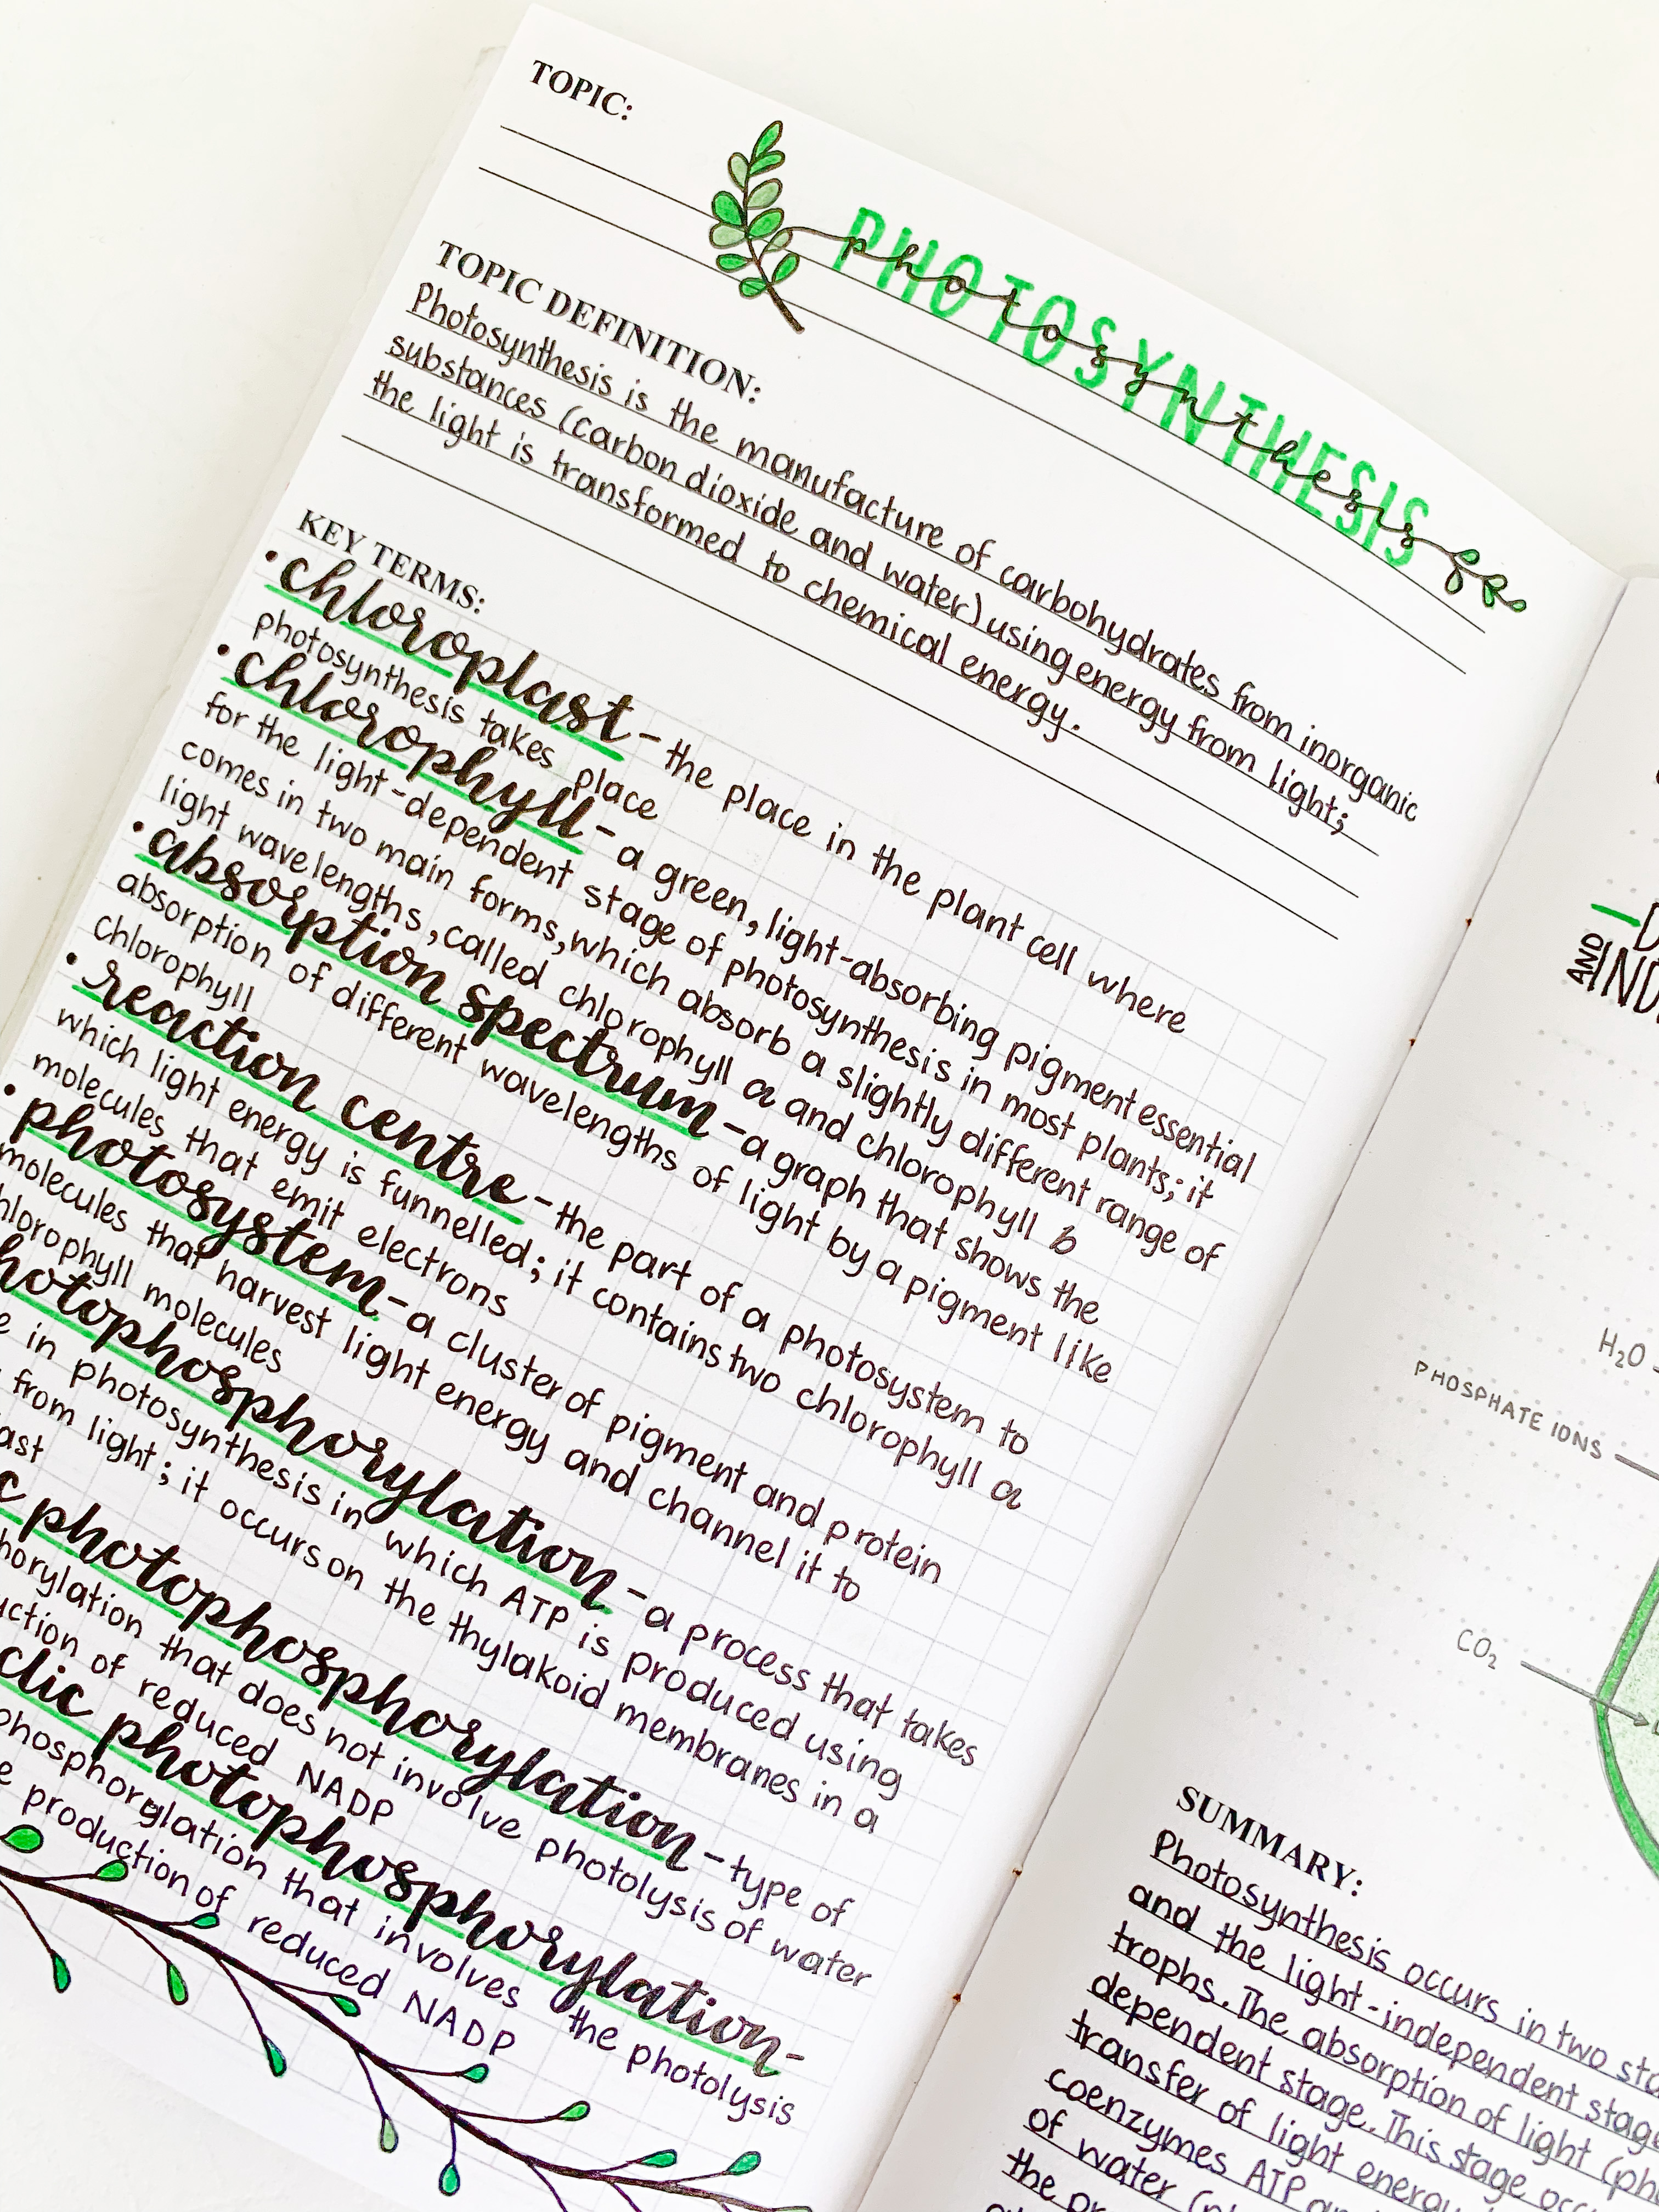 TOPIC:
PHOTOSYNTHESIS
photosynthesis
TOPIC DEFINITION:
Photosynthesis is the manufacture of carbohydrates from inorganic
substances (carbon dioxide and water) using energy from light;
the light is transformed to chemical energy.
KEY TERMS:
• chloroplast - the place in the plant cell where
photosynthesis takes place
• chlorophyll - a green, light-absorbing pigment essential
for the light-dependent stage of photosynthesis in most plants; it
comes in two main forms, which absorb a slightly different range of
light wavelengths, called chlorophyll a and chlorophyll b
• absorption spectrum - a graph that shows the
absorption of different wavelengths of light by a pigment like
chlorophyll
• reaction centre - the part of a photosystem to
which light energy is funnelled; it contains two chlorophyll a
molecules that emit electrons
• photosystem - a cluster of pigment and protein
molecules that harvest light energy and channel it to
hlorophyll molecules
hotophosphorylation - a process that takes
e in photosynthesis in which ATP is produced using
from light; it occurs on the thylakoid membranes in a
ast
c photophosphorylation - type of
horylation that does not involve photolysis of water
uction of reduced NADP
clic photophosphorylation -
phosphorylation that involves the photolysis
e production of reduced NADP
AND
IND
H₂O
PHOSPHATE IONS
CO₂
SUMMARY:
Photosynthesis occurs in two sta
and the light-independent stag
trophs. The absorption of light (ph
dependent stage. This stage occ
transfer of light energy
coenzymes ATP an
of water (p
the pr